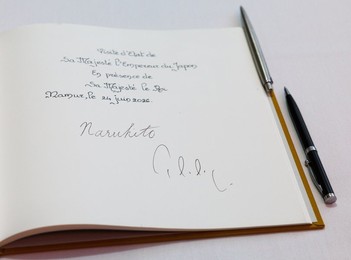 Visite d'Etat de
Sa Majesté l'Empereur du Japon
En présence de
Sa Majesté le Roi
Namur, le 24 juin 2026.
Naruhito